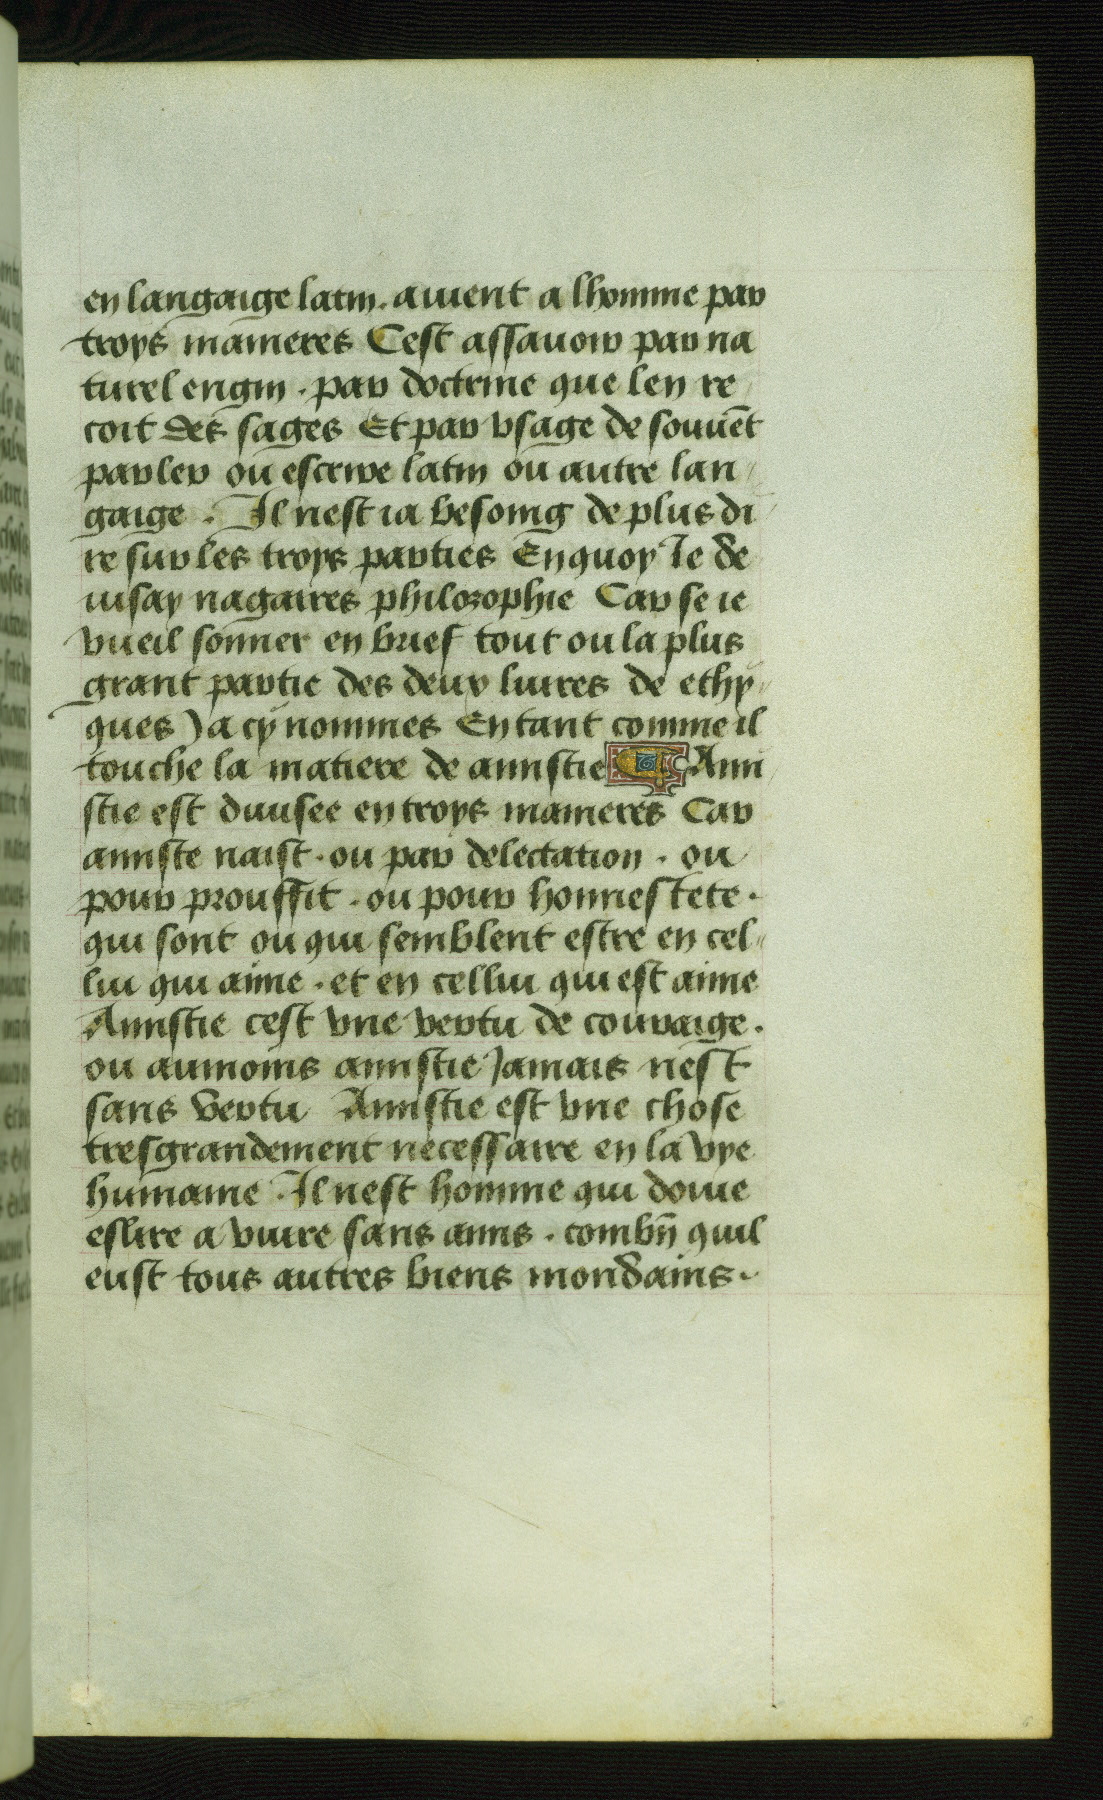 en langaige latin. auient a lhomme par
troys manieres Cest assauoir par na
turel engin. par doctrine que len re
coit des sages Et par vsage de souuēt
parler ou escrire latin ou autre lan
gaige. Il nest ia besoing de plus di
re sur les troys parties En quoy Je de
uisay nagaires philozophie Car se ie
vueil sonner en brief tout ou la plus
grant partie des deux liures de ethy
ques Ja cy nommes En tant comme il
touche la matiere de amistie ¶ Ami
stie est diuisee en troys manieres Car
amiste naist. ou par delectation. ou
pour prouffit. ou pour honnestete.
qui sont ou qui semblent estre en cel
lui qui aime. et en cellui qui est aime
Amistie cest vne vertu de couraige.
ou aumoins amistie Jamais nest
sans vertu Amistie est vne chose
tresgrandement necessaire en la vye
humaine. Il nest homme qui doiue
eslire a viure sans amis. combn̄ quil
eust tous autres biens mondains.